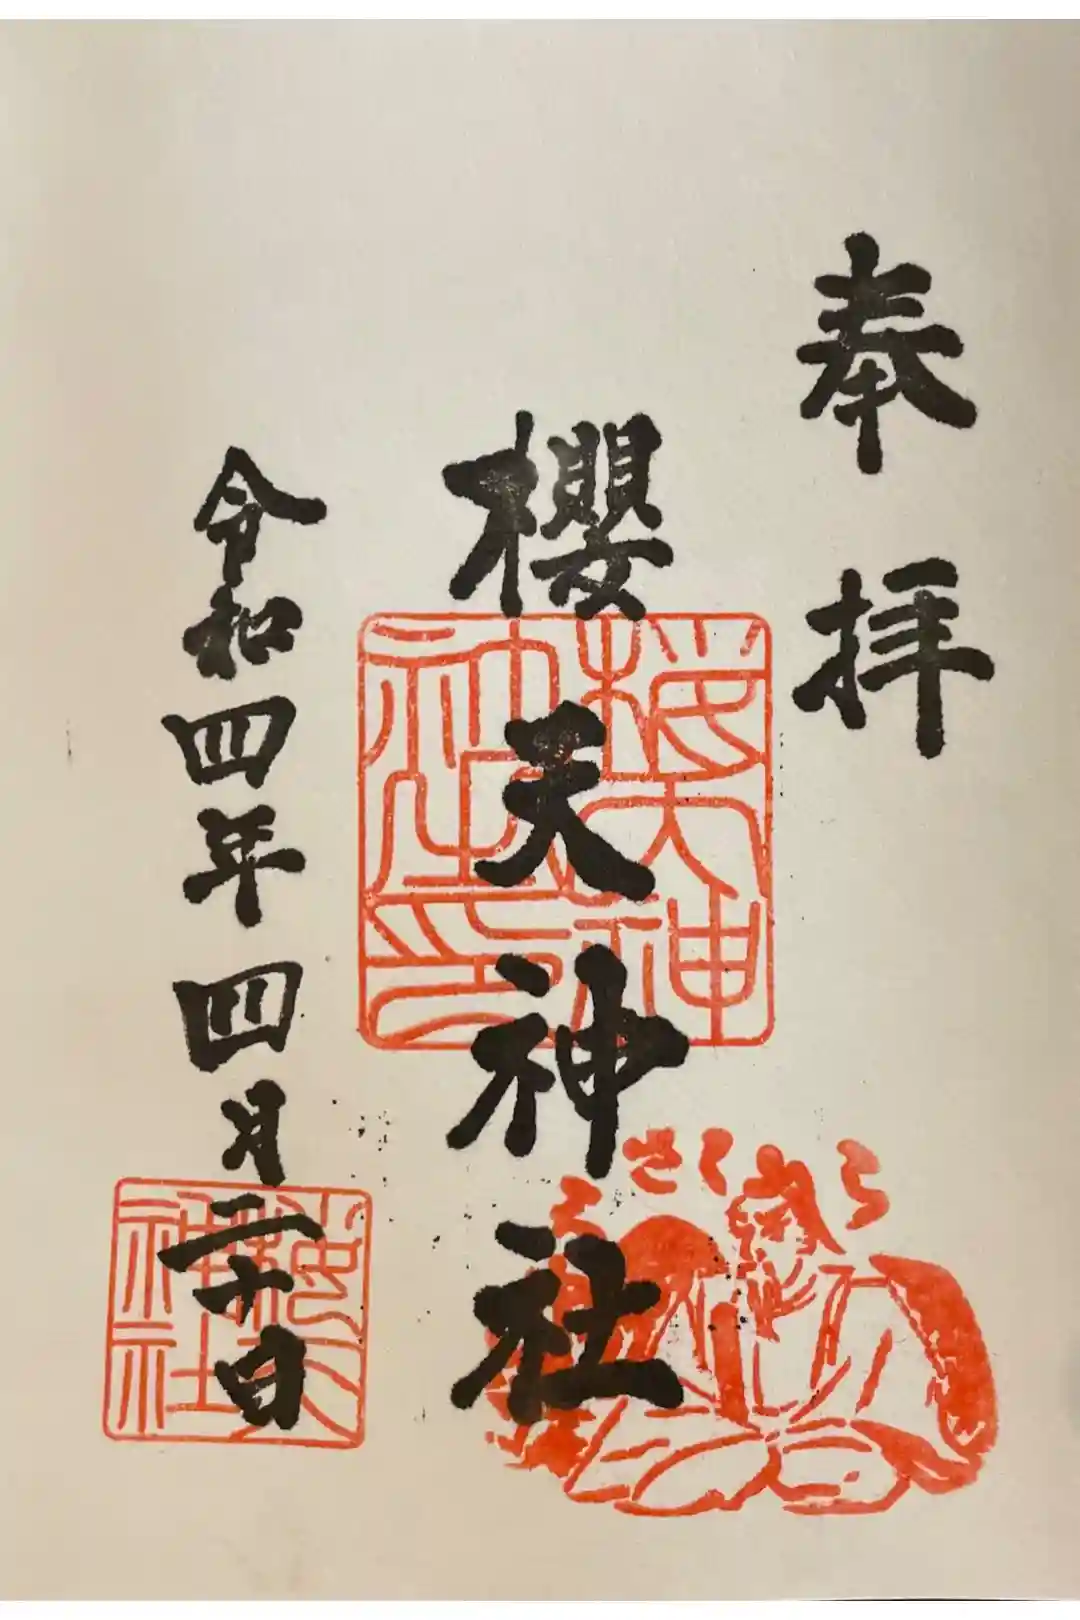 奉拝
櫻天神社
令和四年四月二十日
櫻天神社印
櫻天神社
さくら